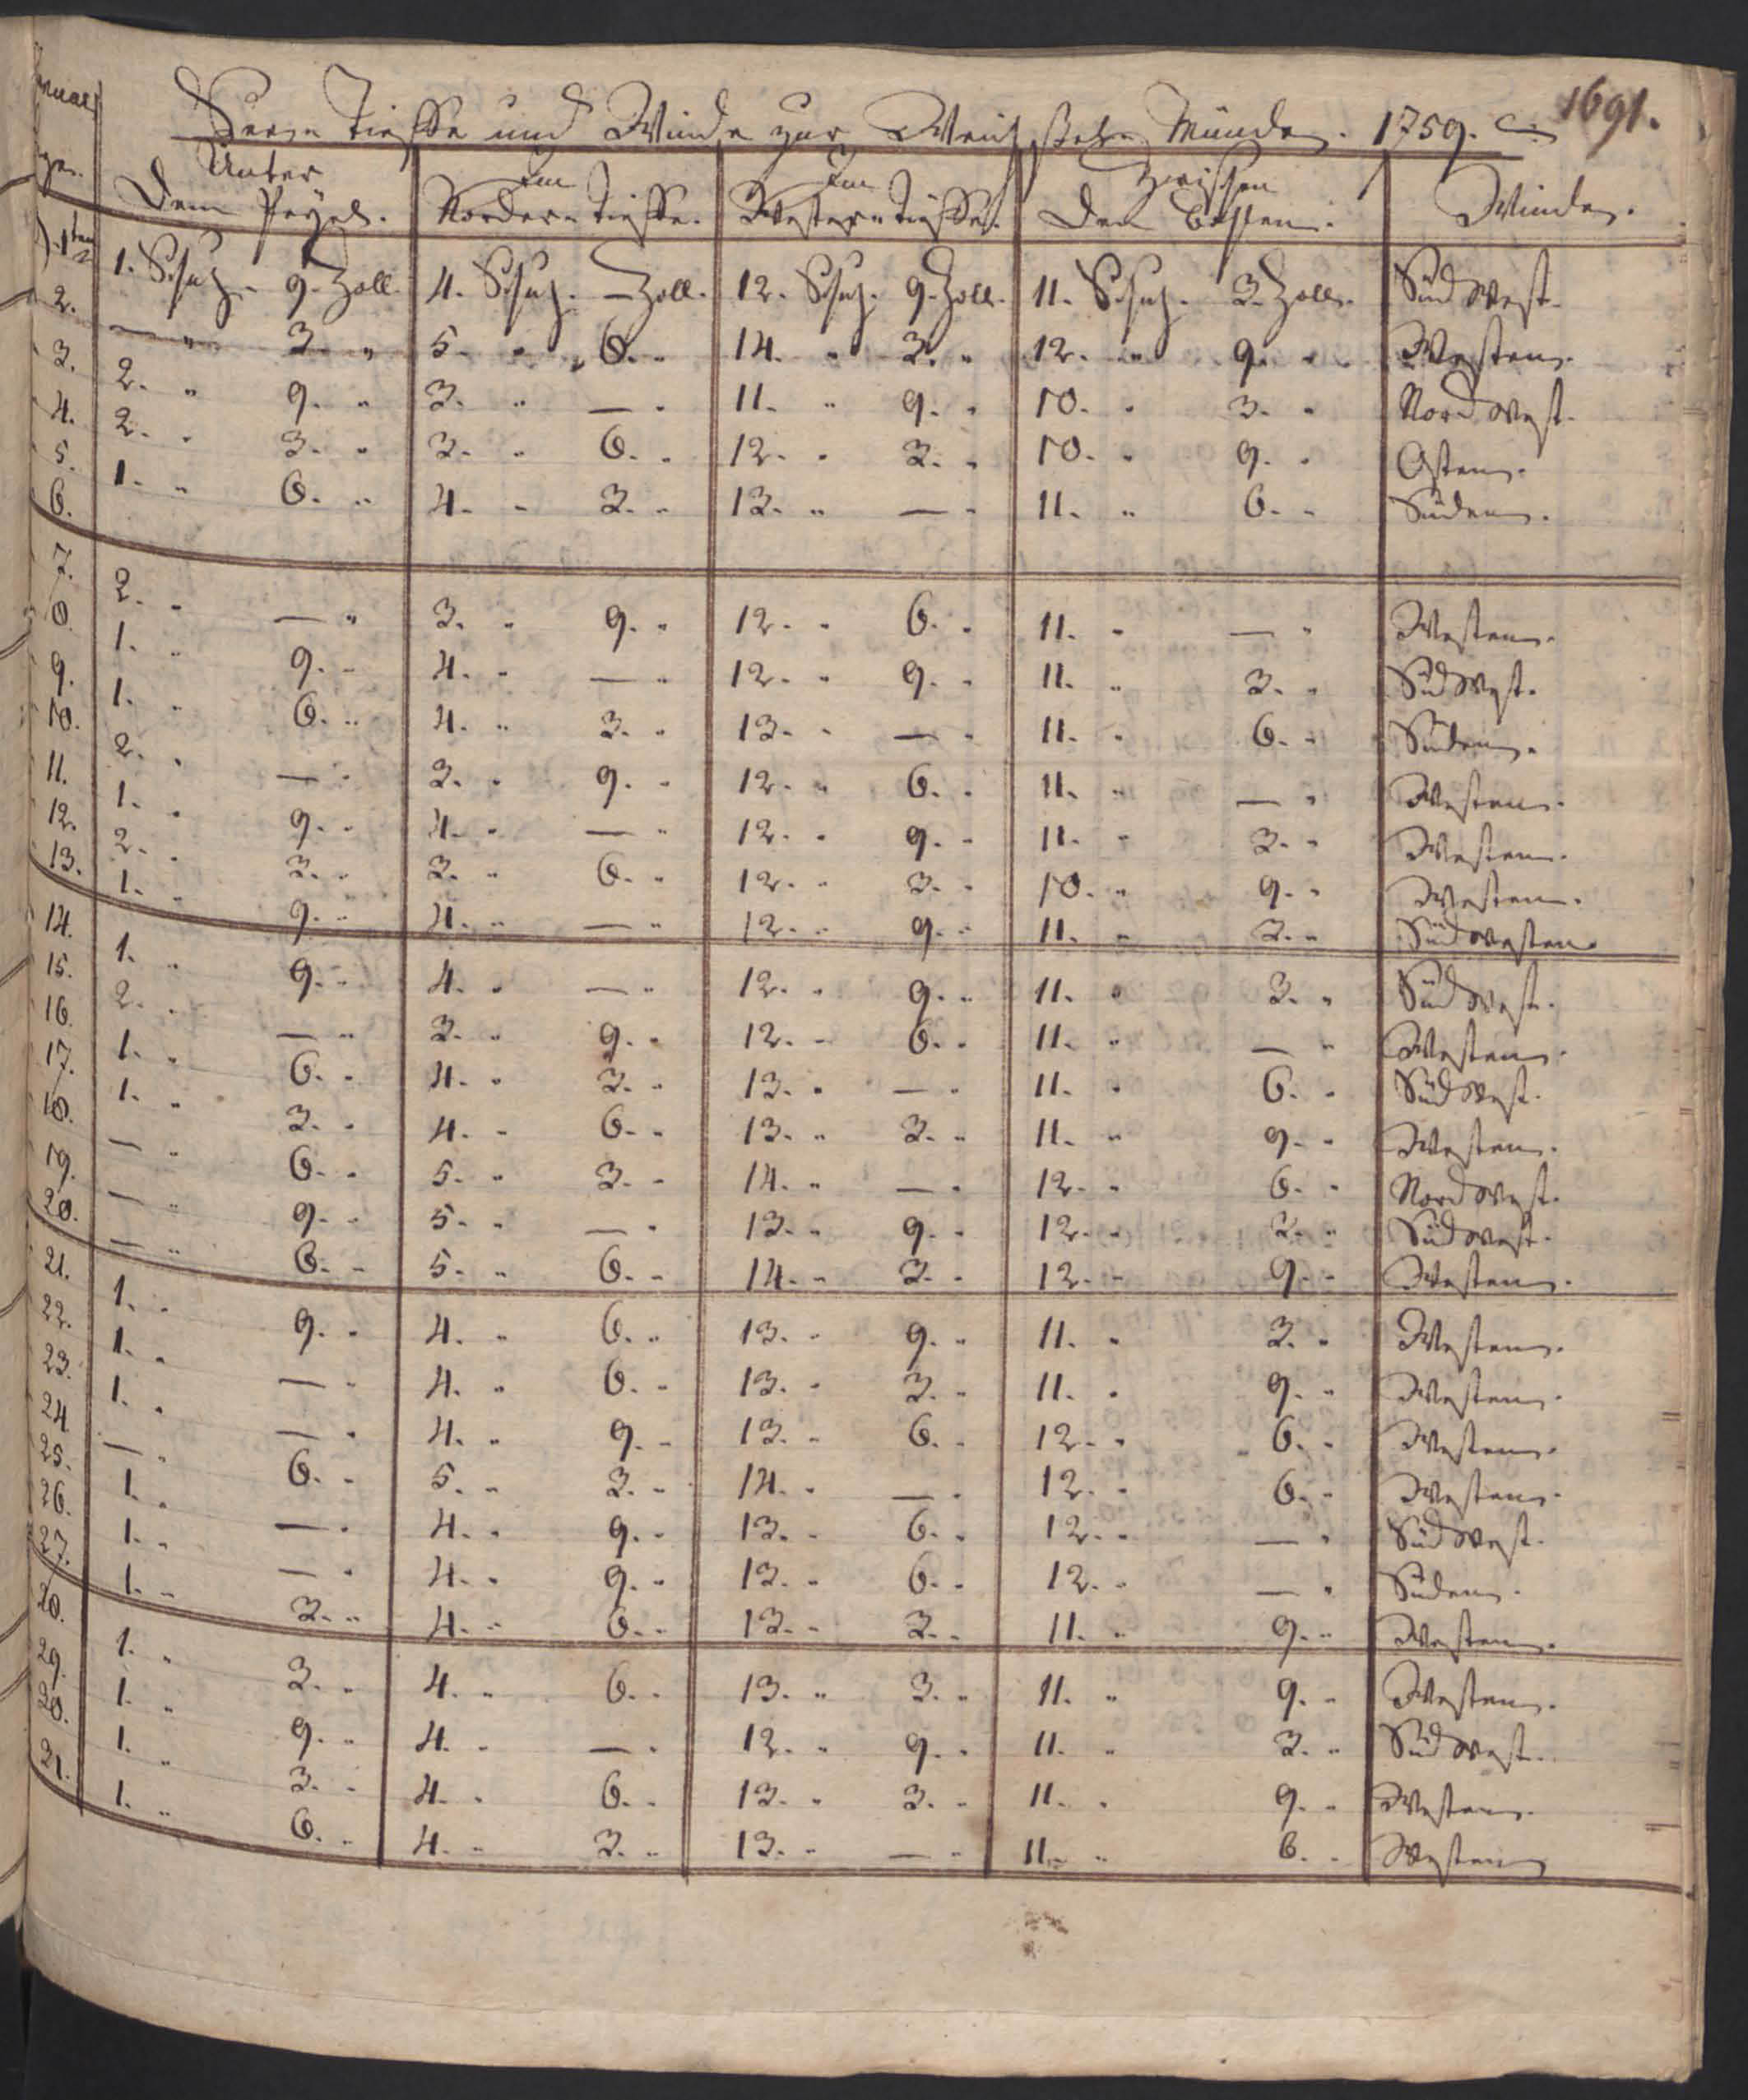 1691.
See-Tieffe und Winde zur Weichselmünde. 1759.
Unter dem Pegel. Im Norder-Tieffe. Im Wester-Tieffe. Zwischen den Winde.
1ten 1. Schuh. 9. Zoll. 4. Schuh. — Zoll. 12. Schuh. 9. Zoll. 11. Schuh. 3. Zoll. Süd West.
2. — " 3. " 5. " 6. " 14. " 3. " 12. " 9. " Westen.
3. 2. " 9. " 3. " — " 11. " 9. " 10. " 3. " Nord West.
4. 2. " 3. " 3. " 6. " 12. " 3. " 10. " 9. " Osten.
5. 1. " 6. " 4. " 3. " 13. " — " 11. " 6. " Süden.
6.
7. 2. " — " 3. " 9. " 12. " 6. " 11. " — " Westen.
8. 1. " 9. " 4. " — " 12. " 9. " 11. " 3. " Süd West.
9. 1. " 6. " 4. " 3. " 13. " — " 11. " 6. " Süden.
10. 2. " — " 3. " 9. " 12. " 6. " 11. " — " Westen.
11. 1. " 9. " 4. " — " 12. " 9. " 11. " 3. " Westen.
12. 2. " 3. " 3. " 6. " 12. " 3. " 10. " 9. " Westen.
13. 1. " 9. " 4. " — " 12. " 9. " 11. " 3. " Süd westen.
14. 1. " 9. " 4. " — " 12. " 9. " 11. " 3. " Süd West.
15. 2. " — " 3. " 9. " 12. " 6. " 11. " — " Westen.
16. 1. " 6. " 4. " 3. " 13. " — " 11. " 6. " Süd West.
17. 1. " 3. " 4. " 6. " 13. " 3. " 11. " 9. " Westen.
18. — " 6. " 5. " 3. " 14. " — " 12. " 6. " Nord West.
19. — " 9. " 5. " — " 13. " 9. " 12. " 3. " Süd West.
20. — " 6. " 5. " 6. " 14. " 3. " 12. " 9. " Westen.
21. 1. " 9. " 4. " 6. " 13. " 9. " 11. " 3. " Westen.
22. 1. " — " 4. " 6. " 13. " 3. " 11. " 9. " Westen.
23. 1. " — " 4. " 9. " 13. " 6. " 12. " 6. " Westen.
24. — " 6. " 5. " 3. " 14. " — " 12. " 6. " Westen.
25. 1. " — " 4. " 9. " 13. " 6. " 12. " — " Süd West.
26. 1. " — " 4. " 9. " 13. " 6. " 12. " — " Süden.
27. 1. " 3. " 4. " 6. " 13. " 3. " 11. " 9. " Westen.
28. 1. " 3. " 4. " 6. " 13. " 3. " 11. " 9. " Westen.
29. 1. " 9. " 4. " — " 12. " 9. " 11. " 3. " Süd West.
30. 1. " 3. " 4. " 6. " 13. " 3. " 11. " 9. " Westen.
31. 1. " 6. " 4. " 3. " 13. " — " 11. " 6. " Westen